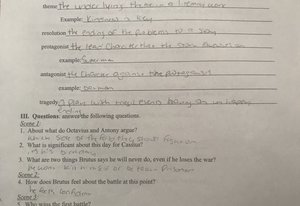 theme the underlying
Example: Kindness is Key
resolution the ending of the problems to a story
protagonist the lead character
example: Superman
antagonist the character against the protagonist
example:
tragedy a play with tragic events having an unhappy
ending
III. Questions: answer the following questions.
Scene 1:
1. About what do Octavius and Antony argue?
which side of the battle they should fight on
2. What is significant about this day for Cassius?
It's his birthday
3. What are two things Brutus says he will never do, even if he loses the war?
Scene 2:
4. How does Brutus feel about the battle at this point?
he feels confident
Scene 3:
5. Who wins the first battle?